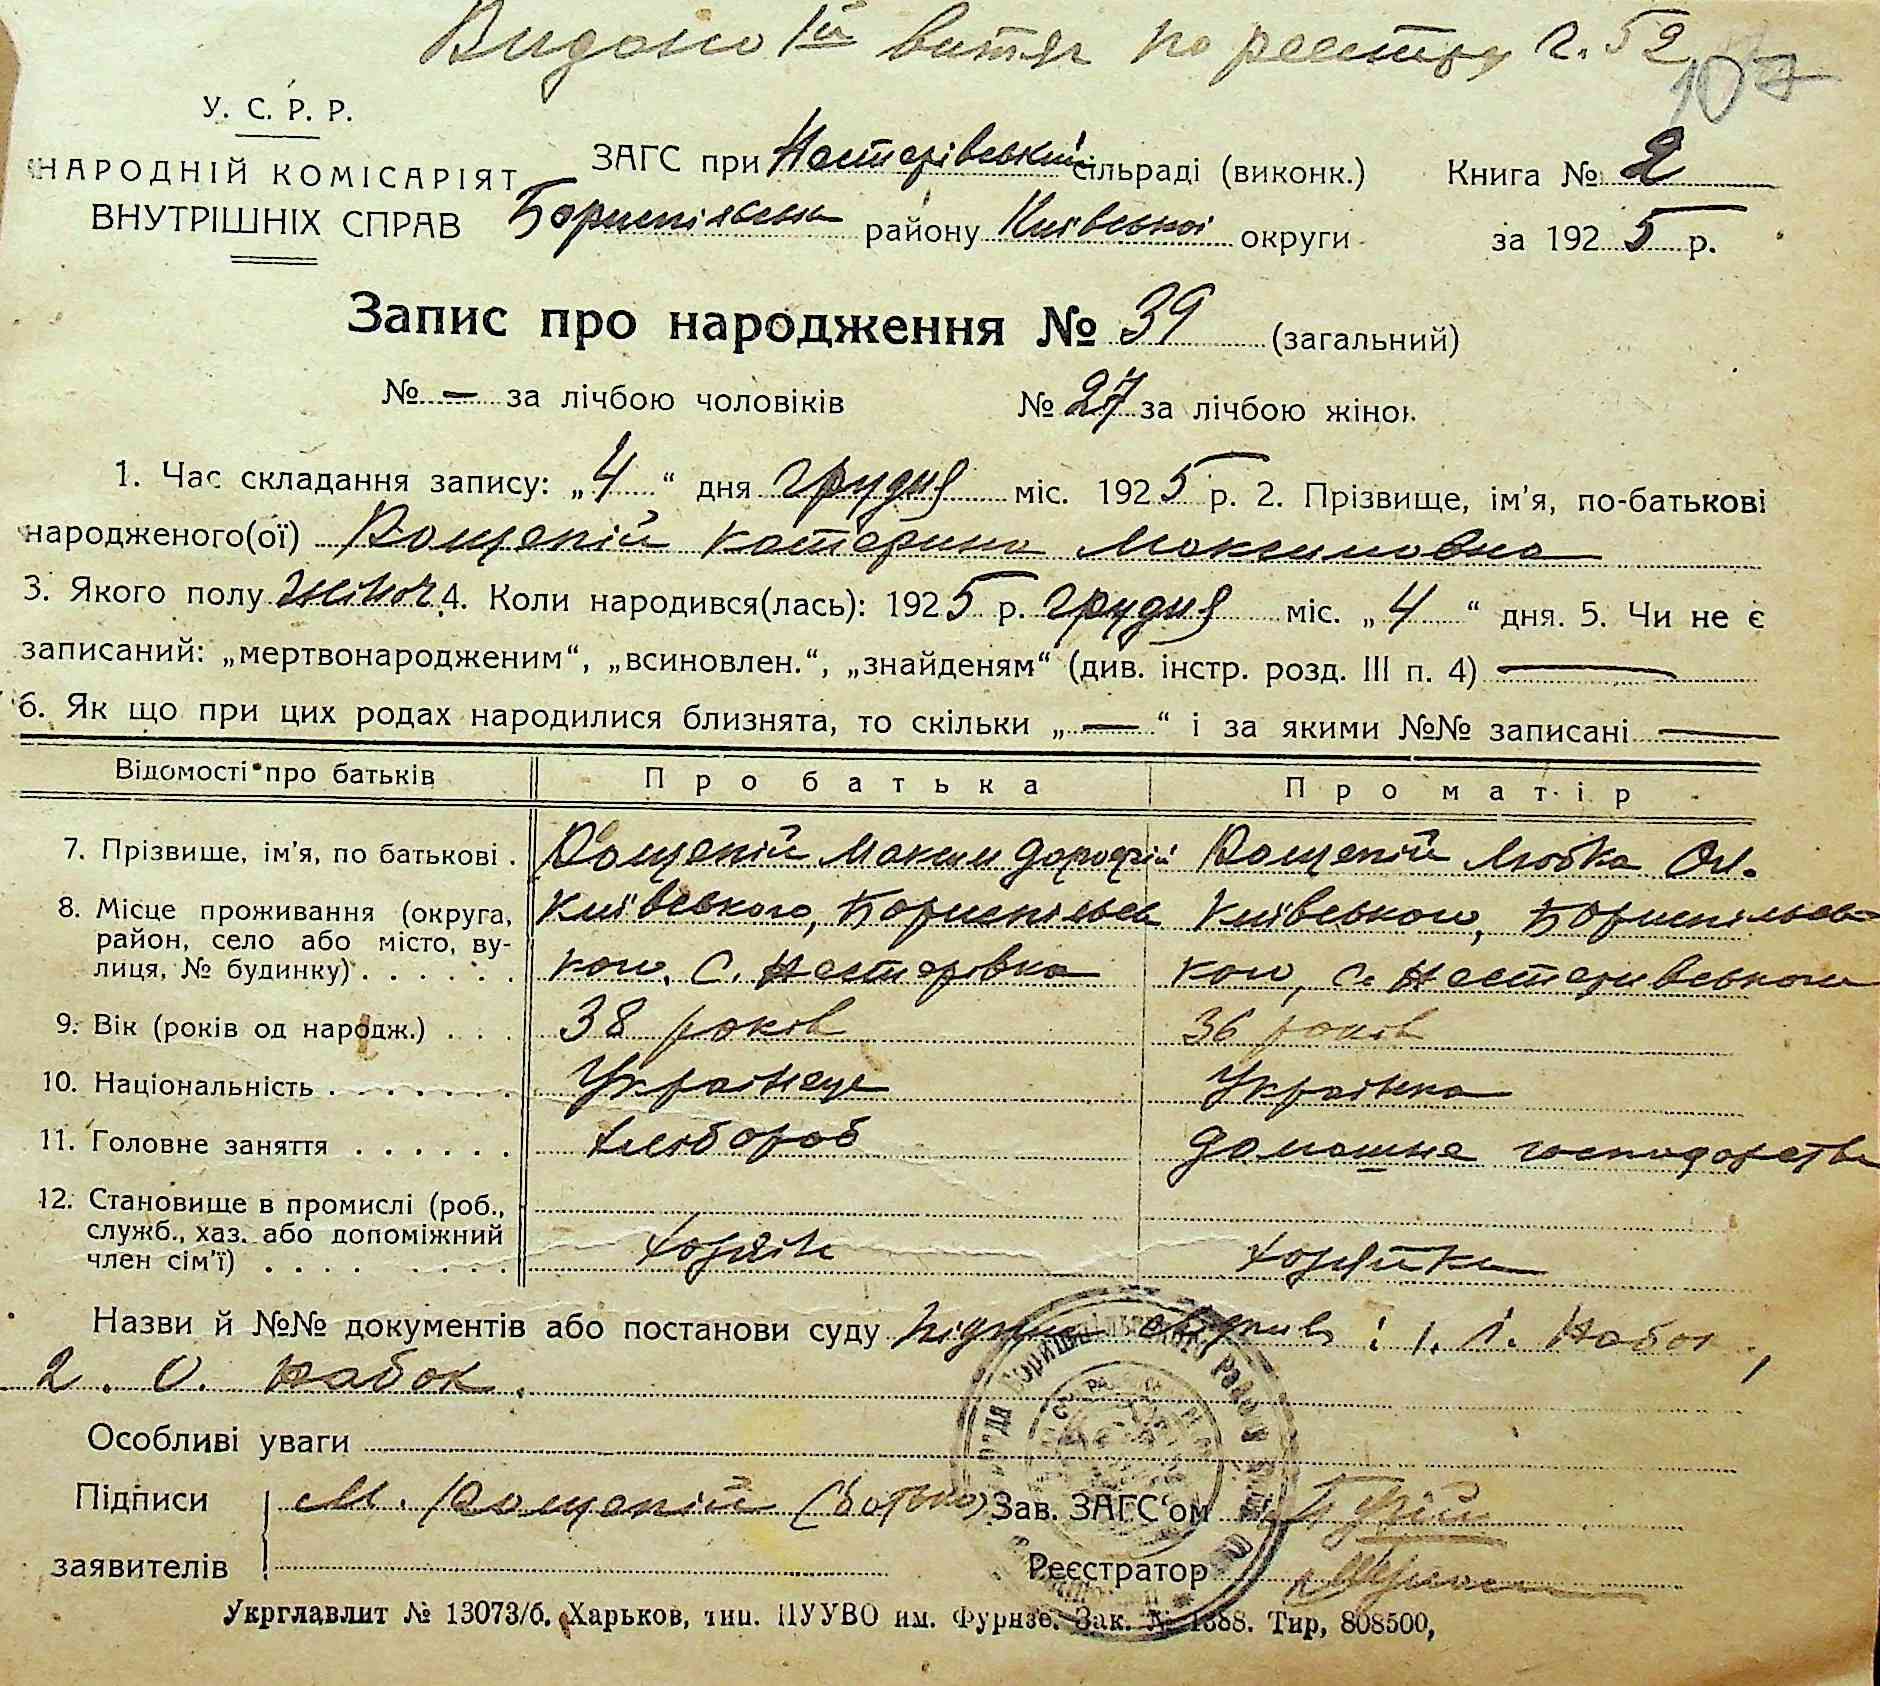 Видано 1ій витяг по реєстру Ч. 52
107
У. С. Р. Р.
НАРОДНІЙ КОМІСАРІЯТ
ВНУТРІШНІХ СПРАВ
ЗАГС при Нестерівській сільраді (виконк.) Книга № 2
району Київської округи за 1925 р.
Запис про народження № 39 (загальний)
№ — за лічбою чоловіків № 27 за лічбою жінок
1. Час складання запису: „4“ дня грудня міс. 1925 р. 2. Прізвище, ім'я, по-батькові
народженого(ої) Рощепій Катерина Максимовна
3. Якого полу жіноч 4. Коли народився(лась): 1925 р. грудня міс. „4“ дня. 5. Чи не є
записаний: „мертвонародженим“, „всиновлен.“, „знайденям“ (див. інстр. розд. III п. 4) —
6. Як що при цих родах народилися близнята, то скільки „—“ і за якими №№ записані —
Відомості про батьків Про батька Про матір
7. Прізвище, ім'я, по батькові . Рощепій Максим Дорофій Рощепій Любка Ол.
8. Місце проживання (округа, Київського, Бориспільсь Київського, Бориспільсь-
район, село або місто, ву-
лиця, № будинку) . . . . . . кого, с. Нестерівка кого, с. Нестеривського
9. Вік (років од народж.) . . . 38 років 36 років
10. Національність . . . . . . . Українець Українка
11. Головне заняття . . . . . . хлібороб домашнє господарств
12. Становище в промислі (роб.,
служб., хаз. або допоміжний
член сім'ї) . . . . . . . . . хозяїн хозяйка
Назви й №№ документів або постанови суду : 1. І. Набок,
2. О. Набок.
Особливі уваги
Підписи М. Рощепій (батько) Зав. ЗАГС'ом
заявителів Реєстратор
Укрглавлит № 13073/б. Харьков, тип. ПУУВО им. Фрунзе. Зак. № 1388. Тир, 808500,